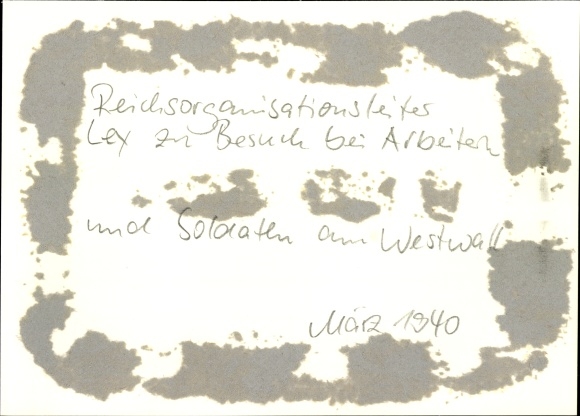 Reichsorganisationsleiter
Ley zu Besuch bei Arbeitern
und Soldaten am Westwall
März 1940